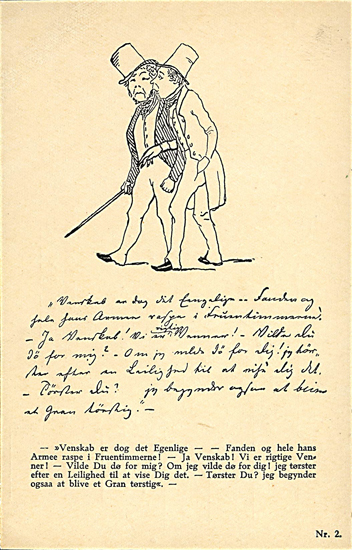 „Venskab er dog det Eengelige -- Fanden og
hele hans Armee raspe i Fruentimmerne!
- Ja Venskab! Vi er rigtige Venner! - Vilde Du
dö for mig? - Om jeg vilde dö for dig! jeg tör-
ster efter en Leilighed til at vise Dig det.
- Törster Du? jeg begynder ogsaa at blive
et Gran törstig! -
— »Venskab er dog det Egenlige — — Fanden og hele hans
Armee raspe i Fruentimmerne! — Ja Venskab! Vi er rigtige Ven-
ner! — Vilde Du dø for mig? Om jeg vilde dø for dig! jeg tørster
efter en Leilighed til at vise Dig det. — Tørster Du? jeg begynder
ogsaa at blive et Gran tørstig«. —
Nr. 2.